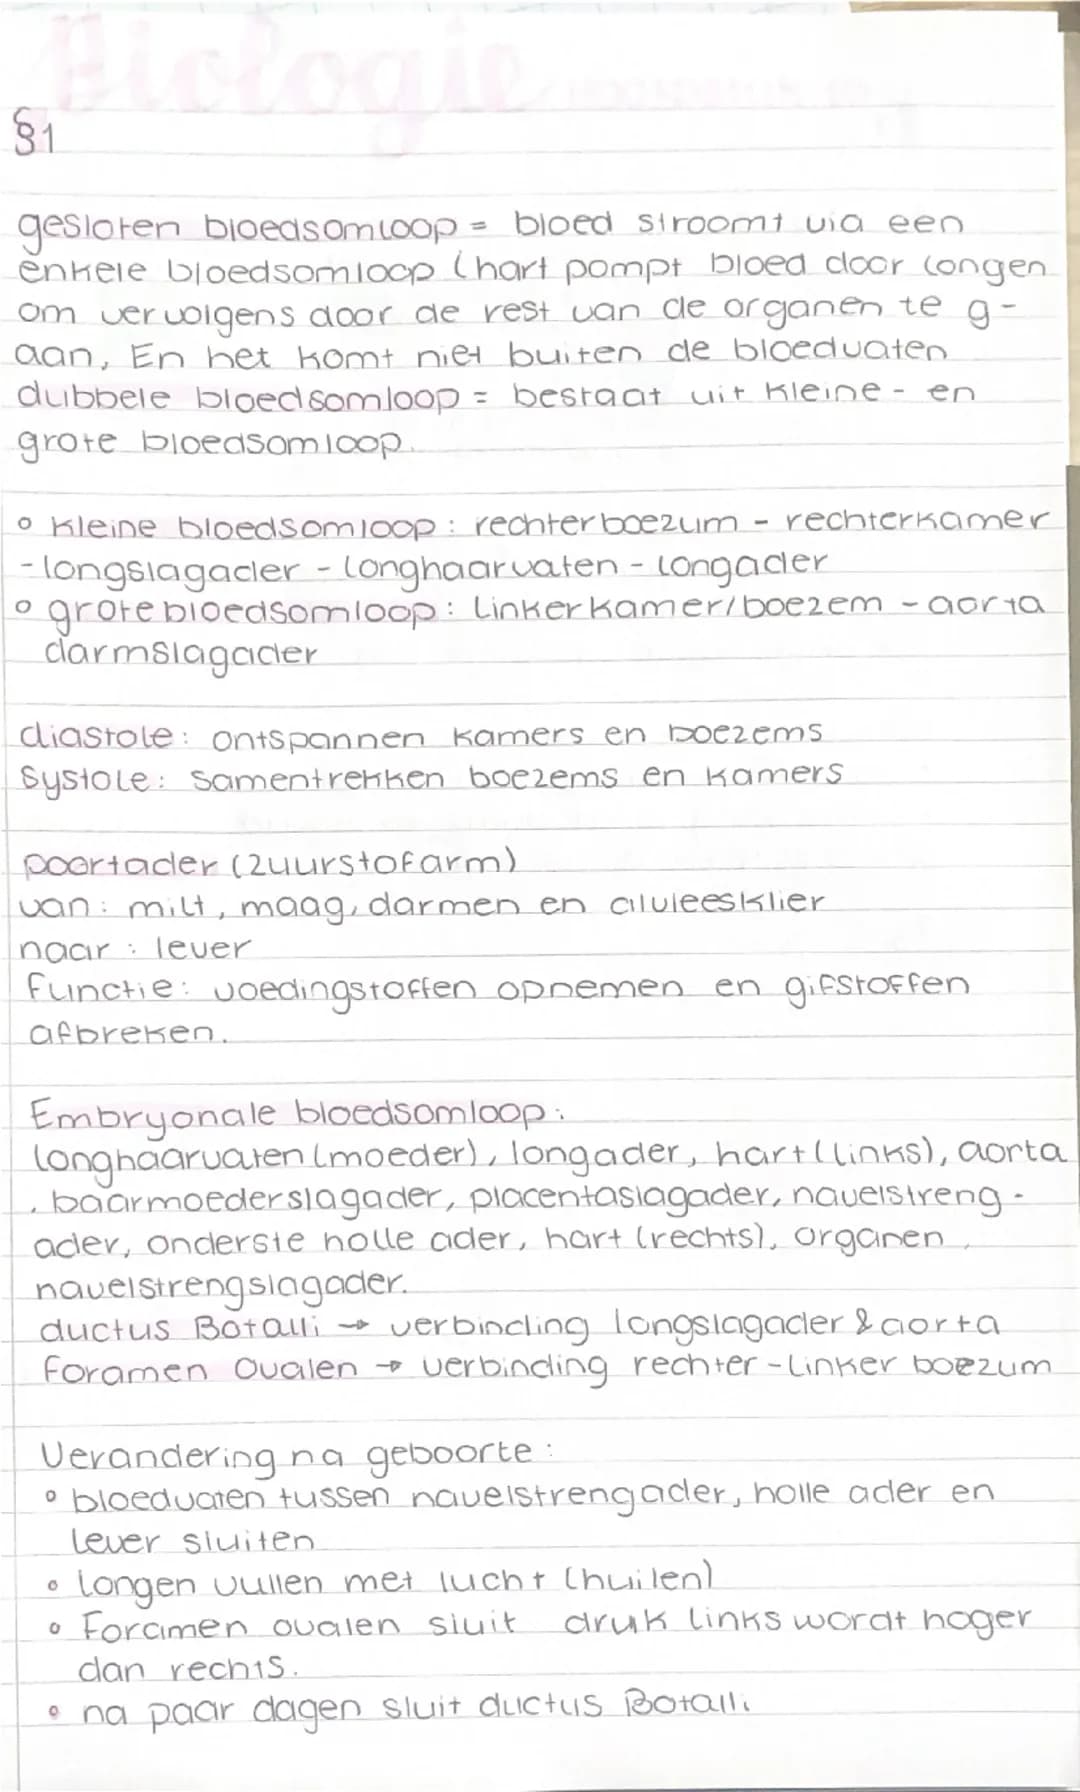 Biologie
§1
gesloten bloedsomloop = bloed stroomt via een
enkele bloedsomloop (hart pompt bloed door longen
om vervolgens door de rest van de organen te g-
aan, En het komt niet buiten de bloedvaten
dubbele bloedsomloop = bestaat uit kleine- en
grote bloedsomloop.
° kleine bloedsomloop: rechterboezum - rechterkamer
- longslagader - longhaarvaten - longader
° grote bloedsomloop: linkerkamer/boezem - aorta
darmslagader
diastole: ontspannen kamers en boezems
Systole: samentrekken boezems en kamers
poortader (zuurstofarm)
van: milt, maag, darmen en alvleesklier
naar: lever
functie: voedingstoffen opnemen en gifstoffen
afbreken.
Embryonale bloedsomloop:
longhaarvaten (moeder), longader, hart (links), aorta
, baarmoederslagader, placentaslagader, navelstreng-
ader, onderste holle ader, hart (rechts), organen,
navelstrengslagader.
ductus Botalli → verbinding longslagader & aorta
foramen Ovalen → verbinding rechter-linker boezum
Verandering na geboorte:
° bloedvaten tussen navelstrengader, holle ader en
lever sluiten
° longen vullen met lucht (huilen)
° Foramen ovalen sluit druk links wordt hoger
dan rechts.
° na paar dagen sluit ductus Botalli